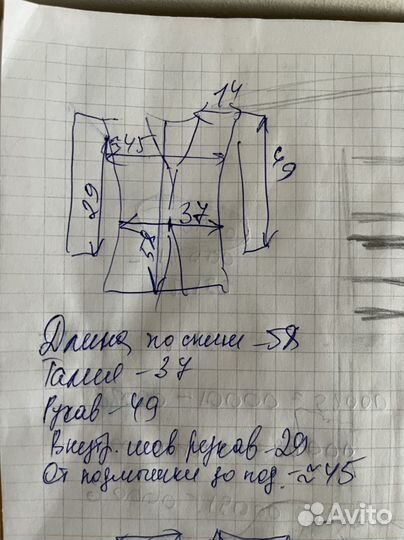 14
≈45
49
29
37
58
Длина по спине -58
Талия -37
Рукав -49
Внутр. шов рукав -29
От подмышки до под. -≈45
Avito